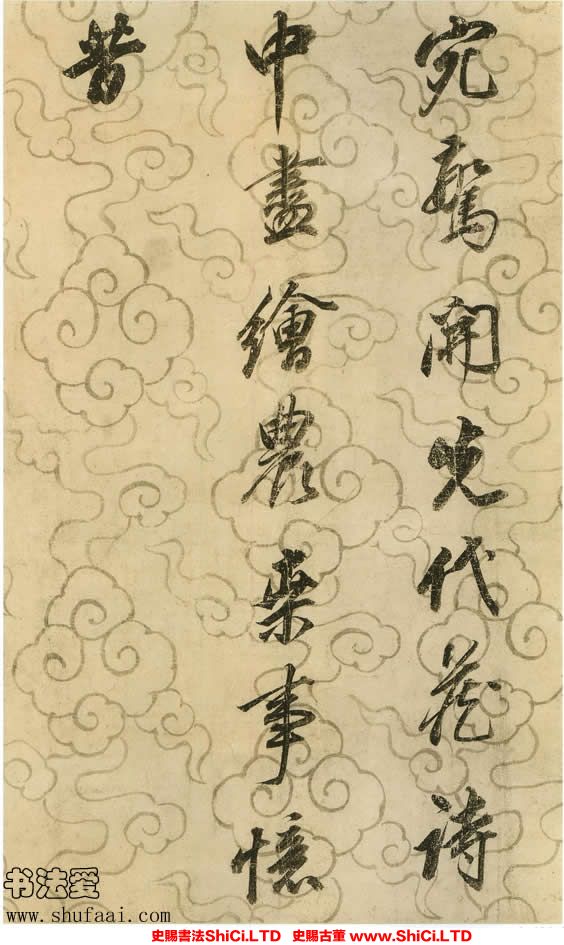 宛開先代詩
中盡繪農桑事憶
昔
书法爱
www.shufaai.com
史賜書法ShiCi.LTD 史賜古董 www.ShiCi.LTD